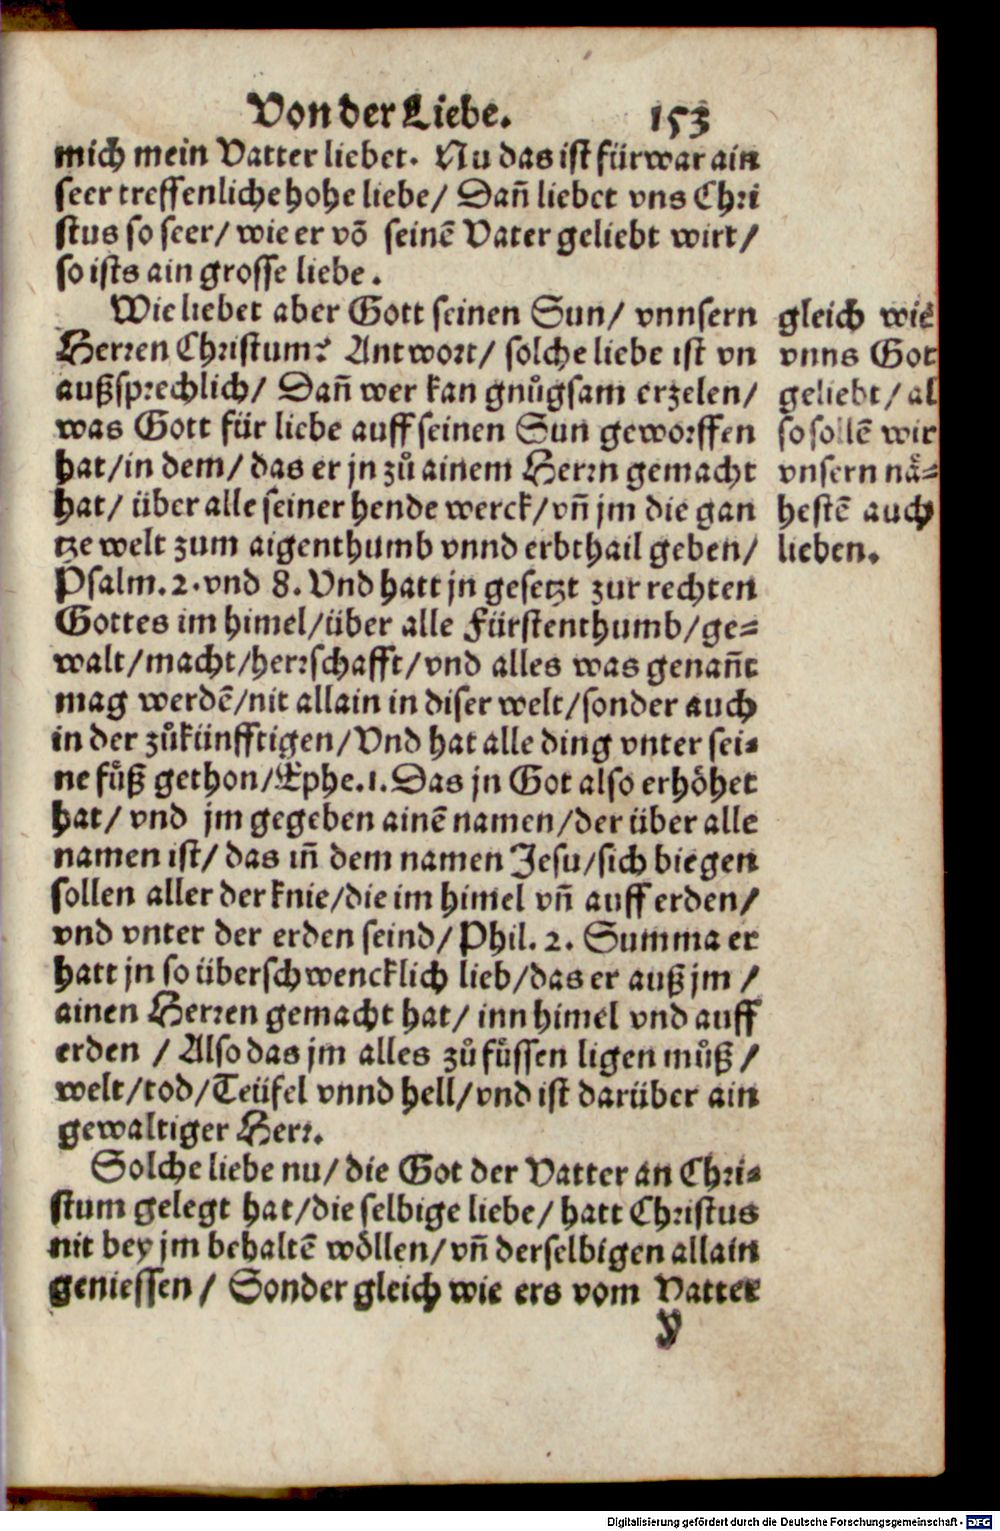 Von der Liebe. 153
mich mein Vatter liebet. Nu das ist fürwar ain
seer treffenliche hohe liebe/ Dañ liebet vns Chri
stus so seer/ wie er võ seinẽ Vater geliebt wirt/
so ists ain grosse liebe.
Wie liebet aber Gott seinen Sun/ vnnsern
Herren Christum? Antwort/ solche liebe ist vn
außsprechlich/ Dañ wer kan gnůgsam erzelen/
was Gott für liebe auff seinen Sun geworffen
hat/in dem/ das er jn zů ainem Herrn gemacht
hat/ über alle seiner hende werck/vñ jm die gan
tze welt zum aigenthumb vnnd erbthail geben/
Psalm.2.vnd 8. Vnd hatt jn gesetzt zur rechten
Gottes im himel/über alle Fürstenthumb/ge=
walt/macht/herrschafft/vnd alles was genañt
mag werdẽ/nit allain in diser welt/sonder auch
in der zůkünfftigen/Vnd hat alle ding vnter sei=
ne fůß gethon/Ephe.1.Das jn Got also erhöhet
hat/ vnd jm gegeben ainẽ namen/der über alle
namen ist/ das iñ dem namen Jesu/sich biegen
sollen aller der knie/die im himel vñ auff erden/
vnd vnter der erden seind/Phil. 2. Summa er
hatt jn so überschwencklich lieb/das er auß jm /
ainen Herren gemacht hat/ inn himel vnd auff
erden / Also das jm alles zů fůssen ligen můß /
welt/tod/Teüfel vnnd hell/vnd ist darüber ain
gewaltiger Herr.
Solche liebe nu/ die Got der Vatter an Chri=
stum gelegt hat/die selbige liebe/ hatt Christus
nit bey jm behaltẽ wöllen/vñ derselbigen allain
geniessen / Sonder gleich wie ers vom Vatter
V
gleich wie
vnns Got
geliebt/ al
so sollẽ wir
vnsern nä=
hestẽ auch
lieben.
Digitalisierung gefördert durch die Deutsche Forschungsgemeinschaft - DFG